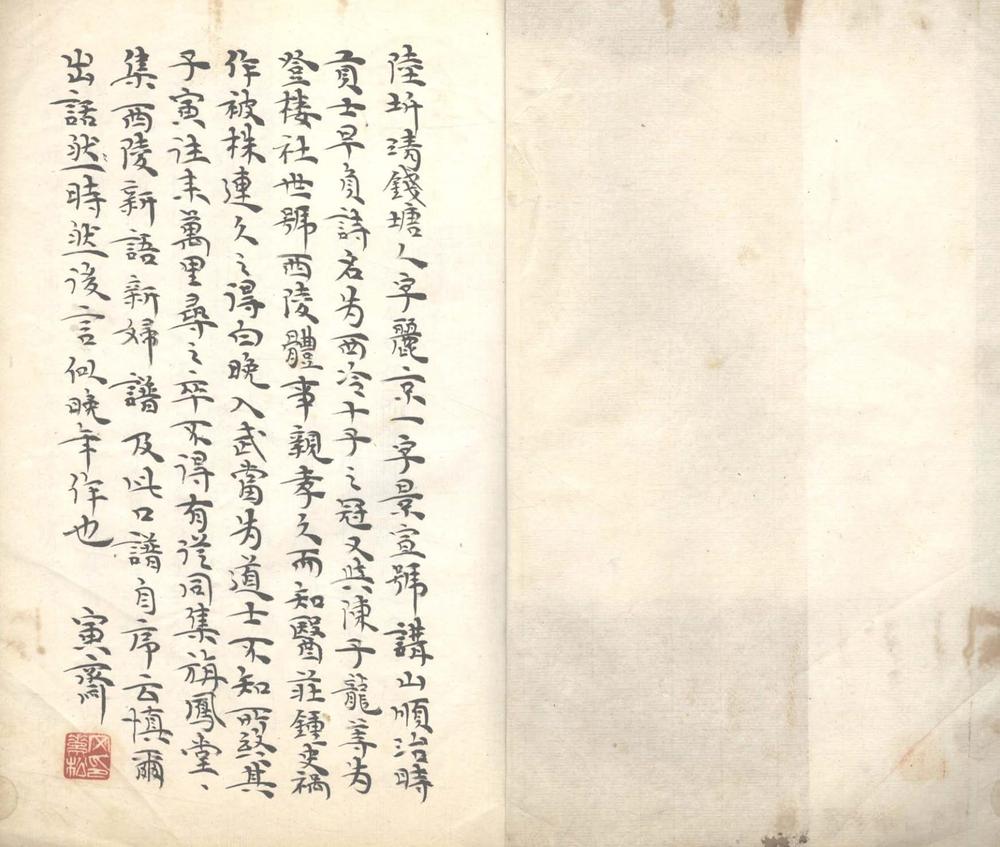 陸圻清錢塘人字麗京一字景宣號講山順治時
貢士早負詩名为西冷十子之冠又與陳子龍等为
登楼社世號西陵體事親孝久而知醫莊鍾史禍
作被株連久之得白晚入武當为道士不知所終其
子寅往来萬里尋之卒不得有從同集旃鳳堂、
集西陵新語新婦譜及此口譜自序云慎爾
出話然一時然後言似晚年作也
寅齋